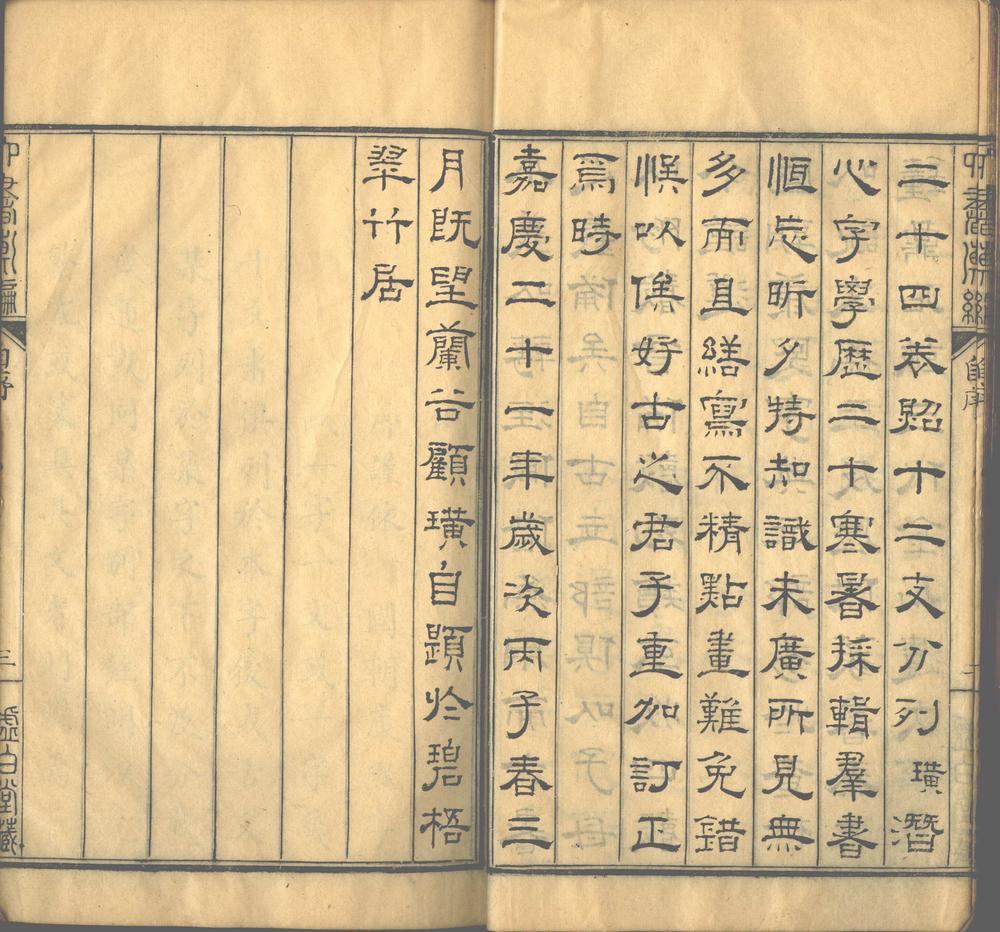 二十四卷照十二支分列璜潛
心字學歷二十寒暑採輯羣書
恆忘昕夕特知識未廣所見無
多而且繕寫不精點畫難免錯
悞以俟好古之君子重加訂正
焉時
嘉慶二十一年歲次丙子春三
月既望蘭谷顧璜自題於碧梧
翠竹居
自序
三
虛白堂藏